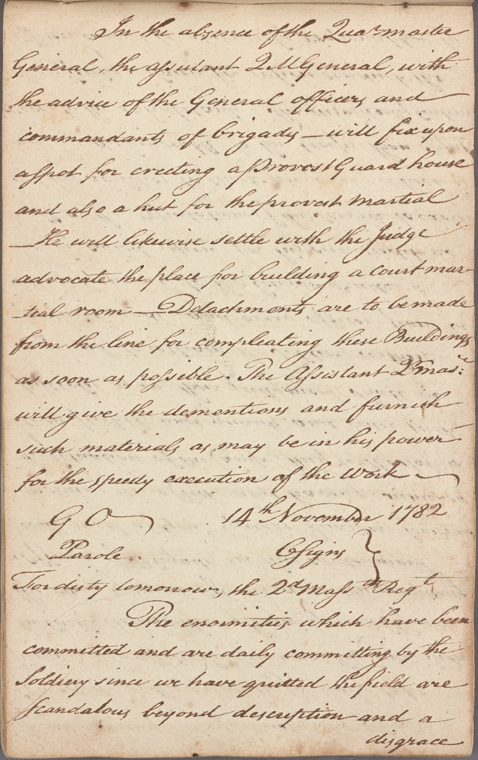 In the absence of the Quarmaster
General, the assistant Q M General, with
the advice of the General officers and
commandants of brigads — will fix upon
a spot for erecting a provost Guard house
and also a hut for the provost martial
— He will likewise settle with the Judge
advocate the place for building a court mar-
tial room — Ddachments are to be made
from the line for compleating these Buildings
as soon as possible. The Assistant Qrmasr:
will give the demontions and furnish
such materials as may be in his power
for the speedy execution of the Work
G O 14th November 1782
Parole CSigns }
For duty tomorrow, the 2d Massth Regt
The enormities which have been
committed and are daily committing by the
Soldiery since we have quitted the field are
scandalous beyond description and a
disgrace